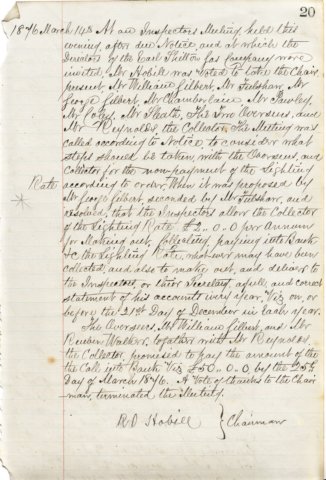 20
1876 March 14th At an Inspectors Meeting held this
evening, after due Notice, and at which the
Directors of the Earl Shilton Gas Company were
invited, Mr Hobill was Voted to take the Chair,
present, Mr William Gilbert, Mr Fulshaw, Mr
George Gilbert, Mr Chamberlaine, Mr Sawley,
Mr Coley, Mr Heath, The Two Overseers, and
Mr Reynolds, the Collector, The Meeting was
called according to Notice, to consider what
steps should be taken, with the Overseers, and
Collector for the non payment of the Lighting
Rate according to order, When it was proposed by
Mr George Gilbert seconded by Mr Fulshaw, and
resolved, that the Inspectors allow the Collector
of the Lighting Rate £2..0..0 per Annum
for Making out, Collecting, paying into Bank
&c the Lighting Rate, what ever may have been
collected, and also to make out, and deliver to
the Inspectors, or their Secretary, a full, and correct
statement of his account every year, Viz on, or
before the 21st Day of December in Each year.
The Overseers, Mr William Gilbert, and Mr
Reuben Walker, together with Mr Reynolds,
the Collector, promised to pay the amount of the
the Call, into Bank Viz £50..0..0 by the 25th
Day of March 1876. A Vote of thanks to the Chair
man, terminated the Meeting.
R D Hobill } Chairman